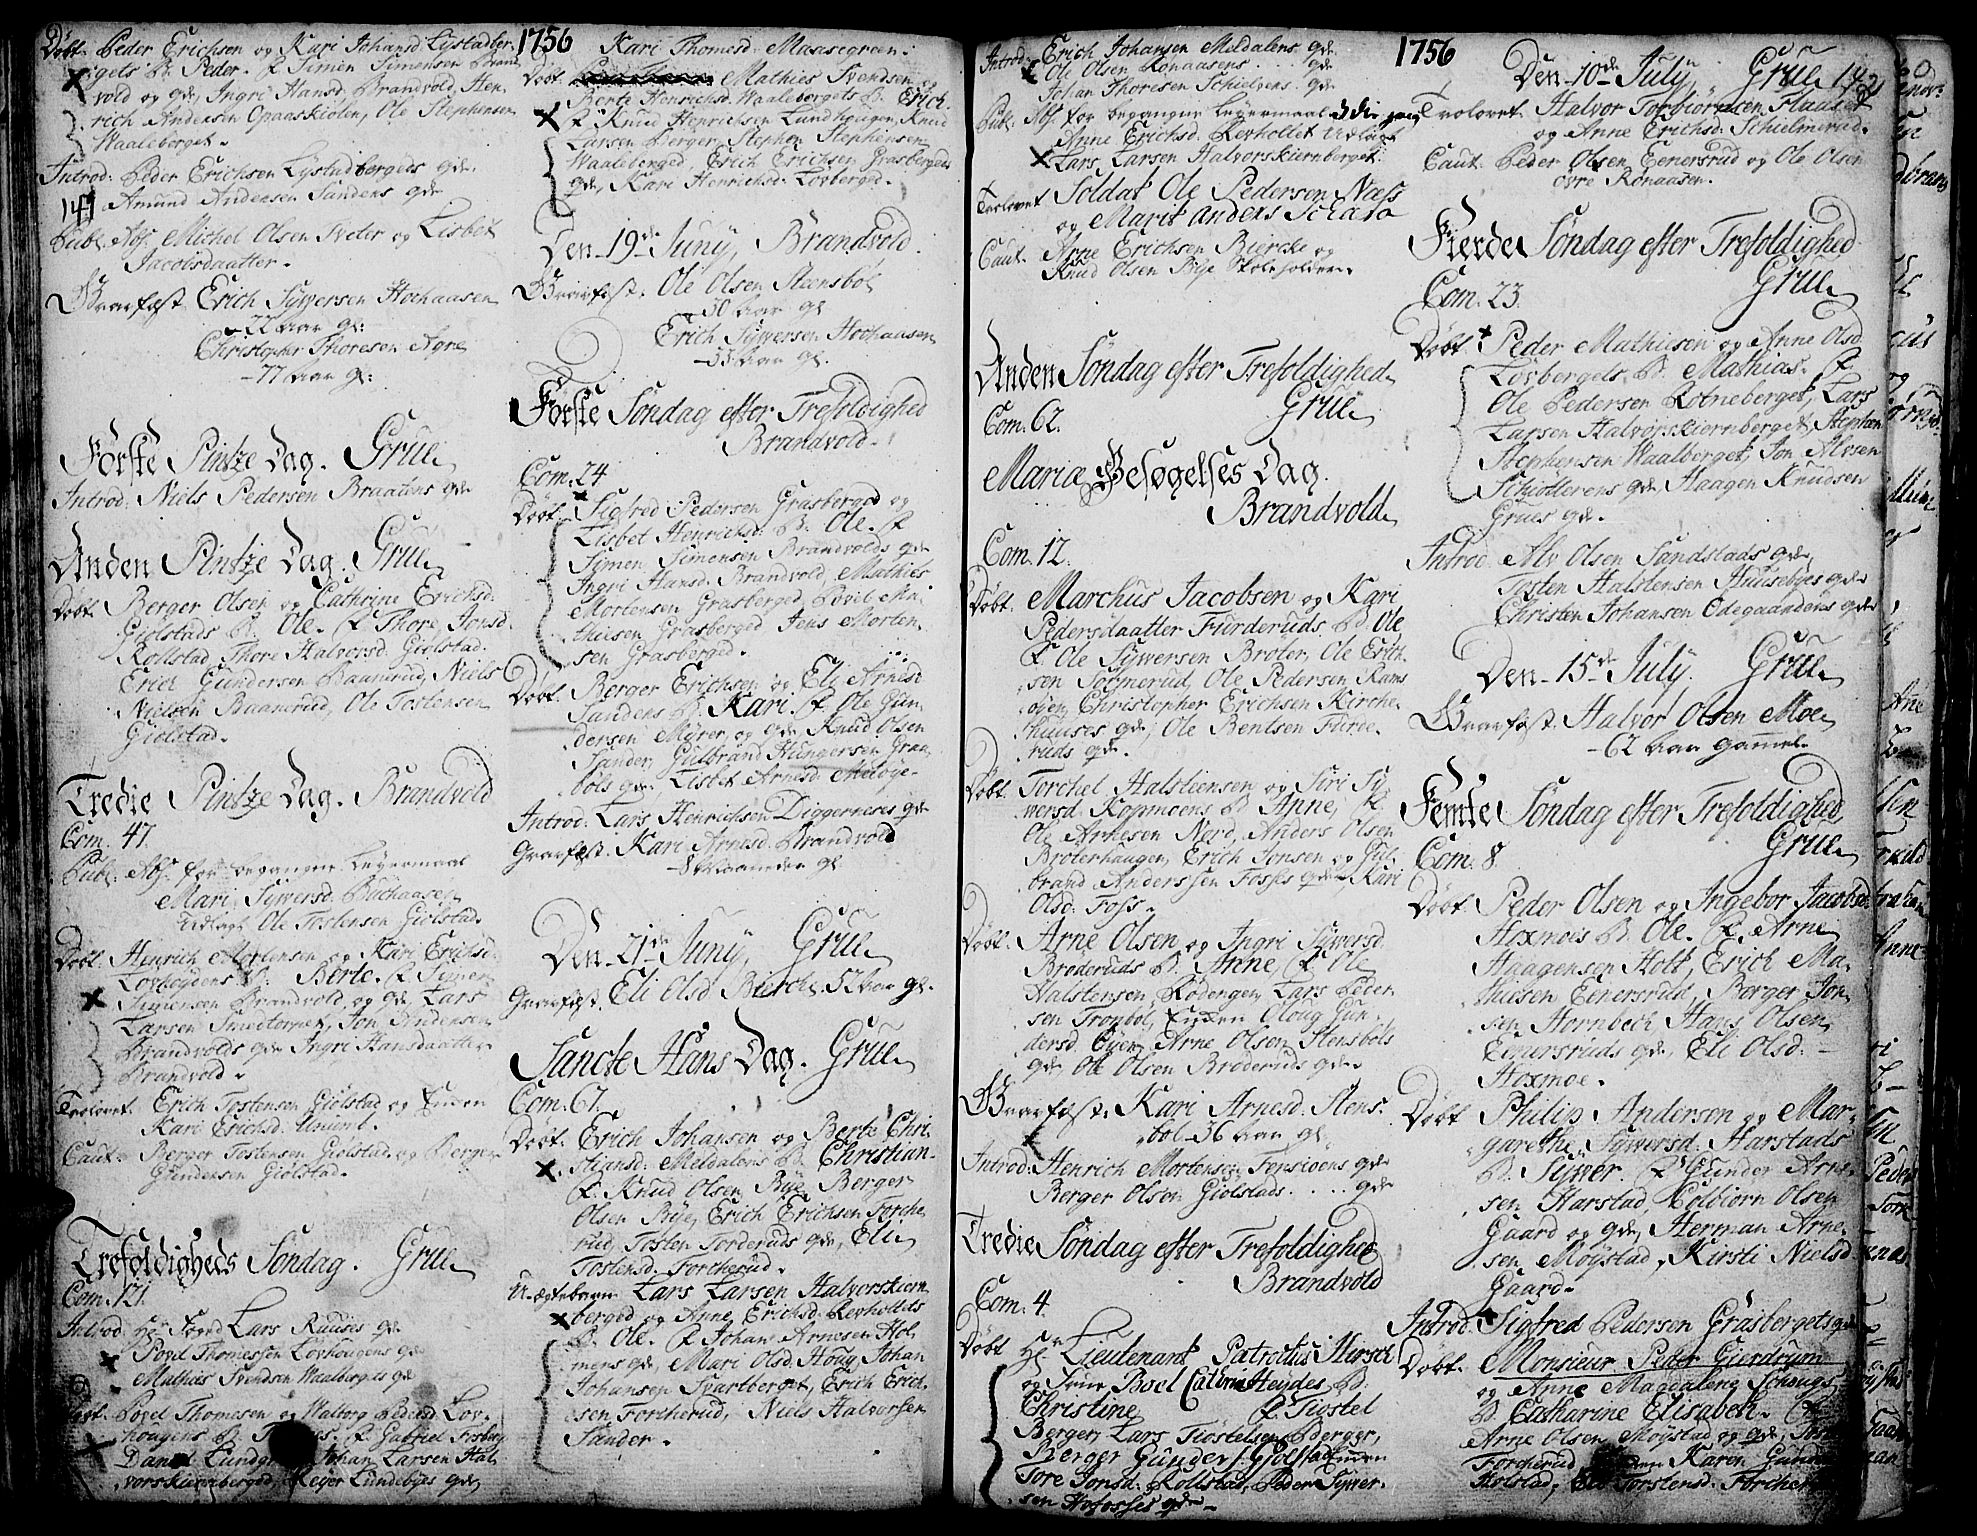 1756
Döbt. Peder Erichsen og Kari Johansd Lystadber-
gets B. Peder. F. Simen Simensen Brand
vold og gde, Ingri Hansd. Brandvold, Hen-
rich Andersen Opaaskiölen, Ole Stephensen
Waaleberget.
Introd: Peder Erichsen Lystadbergets gde.
141 Amund Andersen Sandens gde
Publ. Abs. Michel Olsen Sveter og Lisbet
Jacobsdaatter.
Gravfæst. Erich Sywersen Hochaasen
22 Aar gl:
Christopher Thoresen Agre
77 Aar gl:
Förste Pintze Dag. Grue
Introd: Niels Pedersen Braatens gde
Anden Pintze Dag. Grue
Döbt. Berger Olsen og Cathrine Erichsd.
Giölstads B. Ole. F. Thore Jonsd.
Rollstad, Thore Halvorsd. Giölstad.
Erich Gundersen Baanerud, Niels
Nielsen Baanerud, Ole Tostensen
Giölstad.
Tredie Pintze Dag. Brandvold
Com. 47.
Publ. Abs. for begangne Leyermaal
Mari Sywersd.
Udlagt Ole Tostensen Giölstad.
Döbt. Henrich Mortensen og Kari Erichsd.
B. Berte. F. Simen
Simensen Brandvold, og gde, Lars
Larsen Smedtorpet, Jon Andersen
Brandvolds gde, Ingri Hansdaatter
Brandvold.
Trolovet. Erich Tostensen Giölstad og Enken
Kari Erichsd.
Caut. Berger Tostensen Giölstad og Berger
Gundersen Giölstad.
Trefoldigheds Söndag. Grue
Com. 121.
Introd: Hr. Foged Lars Ruuses gde
Povel Thomessen Lovhougens gde
Mathis Svendsen Waalbergets gde
Döbt. Povel Thomesen og Walborg Pedersd Lov-
hougens B. F. Gabriel
Daniel Johan Larsen Hal-
vorskiernberged, Lundebyes gde,
Kari Thomesd. Maasegreen.
Döbt. Mathies Svendsen og
Berte Henrichsd. Waalebergets B. Erich.
F. Knud Henrichsen Lundhougen, Knud
Larsen Berger, Stephen Stephensen
Waaleberged, Erich Erichsen Grasbergeds
gde, Kari Henrichsd. Lövberged.
Den 19de Juny, Brandvold.
Gravfæst. Ole Olsen Steensböl
30 Aar gl
Erich Sywersen Hochaasen
33 Aar gl.
Förste Söndag efter Trefoldighed
Brandvold.
Com. 24
Döbt. Sigfred Pedersen Grasberged og
Lisbet Henrichsd. B. Ole. F.
Simen Simensen Brandvolds gde
Ingri Hansd. Brandvold, Mathies
Mortensen Grasberged, Povel Ma-
thisen Grasberged, Jens Morten-
sen Grasberged.
Döbt. Berger Erichsen og Eli Arnesd
Sandens B. Kari. F. Ole Gun-
dersen Myrer, og gde, Knud Olsen
Sander, Gulbrand Hungersen Gran-
böls gde, Lisbet Arnesd. Melöye-
Introd: Lars Henrichsen Diggernæses gde
Gravfæst. Kari Arnesd. Brandvold
8 Maaneder gl
Den 21de Juny, Grue
Gravfæst. Eli Olsd. Bierche 52 Aar gl.
Sancte Hans Dag. Grue
Com. 67.
Döbt. Erich Johansen og Berte Chri-
stiansd. Meldalens B. Christian.
F. Knud Olsen Bye, Berger
Olsen Bye, Erich Erichsen Forche-
rud, Tosten Torderuds gde, Eli
Tostensd. Forcherud.
U-ægtebarn Lars Larsen Halvorskiern
berged og Anne Erichsd. Revholtets
B. Ole. F. Johan Arnesen Hol-
mens gde, Mari Olsd. Houg, Johan
Johansen Svartberget, Erich Erich-
sen Forcherud, Niels Halvorsen
Sander.
1756
Introd: Erich Johansen Meldalens gde
Ole Olsen Rönaasens gde
Johan Thoresen Schielvens gde
Publ. Abs. for begangne Leyermaal
Anne Erichsd. Revholtet Udlagt
Lars Larsen Halvorskiernberget.
Trolovet Soldat Ole Pedersen Næss
og Marit Anders
Caut. Arne Erichsen Biercke og
Knud Olsen Bye Skoleholder.
Anden Söndag efter Trefoldighed
Com. 62. Grue
Mariæ Besøgelses Dag.
Brandvold
Com. 12.
Döbt. Marchus Jacobsen og Kari
Pedersdaatter Furderuds B. Ole
F. Ole Sywersen Broter, Ole Erich-
sen Sormerud, Ole Pedersen Rams
öyen, Christopher Erichsen Kirche-
huuses gde, Ole Bentsen Furde-
ruds gde.
Döbt. Torchel Halstensen og Siri Sy-
wersd. Kopmoens B. Anne, F.
Ole Arnesen Nord, Anders Olsen
Broterhaugen, Erich Jonsen og Gul-
brand Anderssen Fosses gde, Kari
Olsd. Foss.
Döbt. Arne Olsen og Ingri Sywersd.
Bröderuds B. Arne, F. Ole
Halstensen Rödengen, Lars Peder-
sen Tronböl, Enken Oloug Gun-
dersd. Öyen, Arne Olsen Stensböls
gde, Ole Olsen Bröderuds gde.
Gravfæst. Kari Arnesd. Stens-
böl 36 Aar gl.
Introd. Henrich Mortensen gde
Berger Olsen Giölstads gde
Tredie Söndag efter Trefoldighed
Brandvold
Com. 4.
Döbt Hr Lieutenant Patroclus Hirsch
og Frue Boel Catrine Heydes B.
Christine F. Tiöstel
Berger, Lars Tiöstelsen Berger,
Berger Gunders: Gjölstad Enken
Tore Jonsd. Rollstad, Peder Sywer-
sen Hofosses gde
Den 10de July, Grue 142
Trolovet. Halvor Torbiörnsen Flaaset
og Anne Erichsd. Schielmerud.
Caut. Peder Olsen Eenersrud og Ole Olsen
övre Rönaasen.
Fierde Söndag efter Trefoldighed
Grue
Com. 23.
Döbt. Peder Mathiesen og Anne Olsd.
Lövbergets B. Mathias. F.
Ole Pedersen Rotneberget, Lars
Larsen Halvorskiernberget, Stephen
Stephensen Waalberget, Jon Alvsen
Schiötterens gde, Haagen Knudsen
Grues gde.
Introd. Alv Olsen Sandstads gde,
Tosten Halstensen Huusebyes gde
Christen Johansen Ödegaardens gde
Den 15de July. Grue
Gravfæst. Halvor Olsen Moe
62 Aar gammel.
Femte Söndag efter Trefoldighed
Com. 8. Grue
Döbt. Peder Olsen og Ingebor Jacobsd.
Hoxmoes B. Ole. F. Arne
Haagensen Hott, Erich Ma-
thiesen Eenersrud, Berger Jon-
sen Hornbech, Hans Olsen
Eenersruds gde, Eli Olsd.
Hoxmoe.
Döbt Philip Andersen og Mar-
garethe Sywersd. Harstads
B. Sywer. F. Gunder Arne-
sen Harstad, Colbiörn Olsen
Gaard og gde, Herman Arne-
sen Möystad, Kirsti Nielsd
Gaard.
Introd. Sigfred Pedersen Grasbergets gde
Döbt. Monsieur Peder Gierdrum
og Anne Magdalene Schougs
B. Catharine Elisabeth.
Arne Olsen Möystad og gde,
Forcherud, Karen
Torstensd. Forcherud